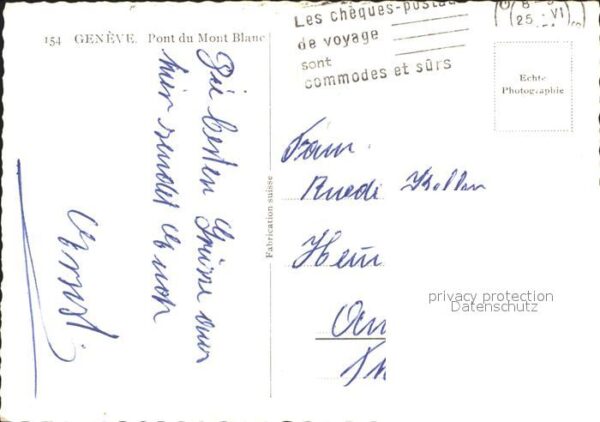 154 GENÈVE. Pont du Mont Blanc
Les chèques-postaux
de voyage
sont
commodes et sûrs
25. VI
Echte
Photographie
Die besten Grüsse von
hier sendet Euch
Ernst
Fabrication suisse
Fam.
Ruedi
Heim
privacy protection
Datenschutz